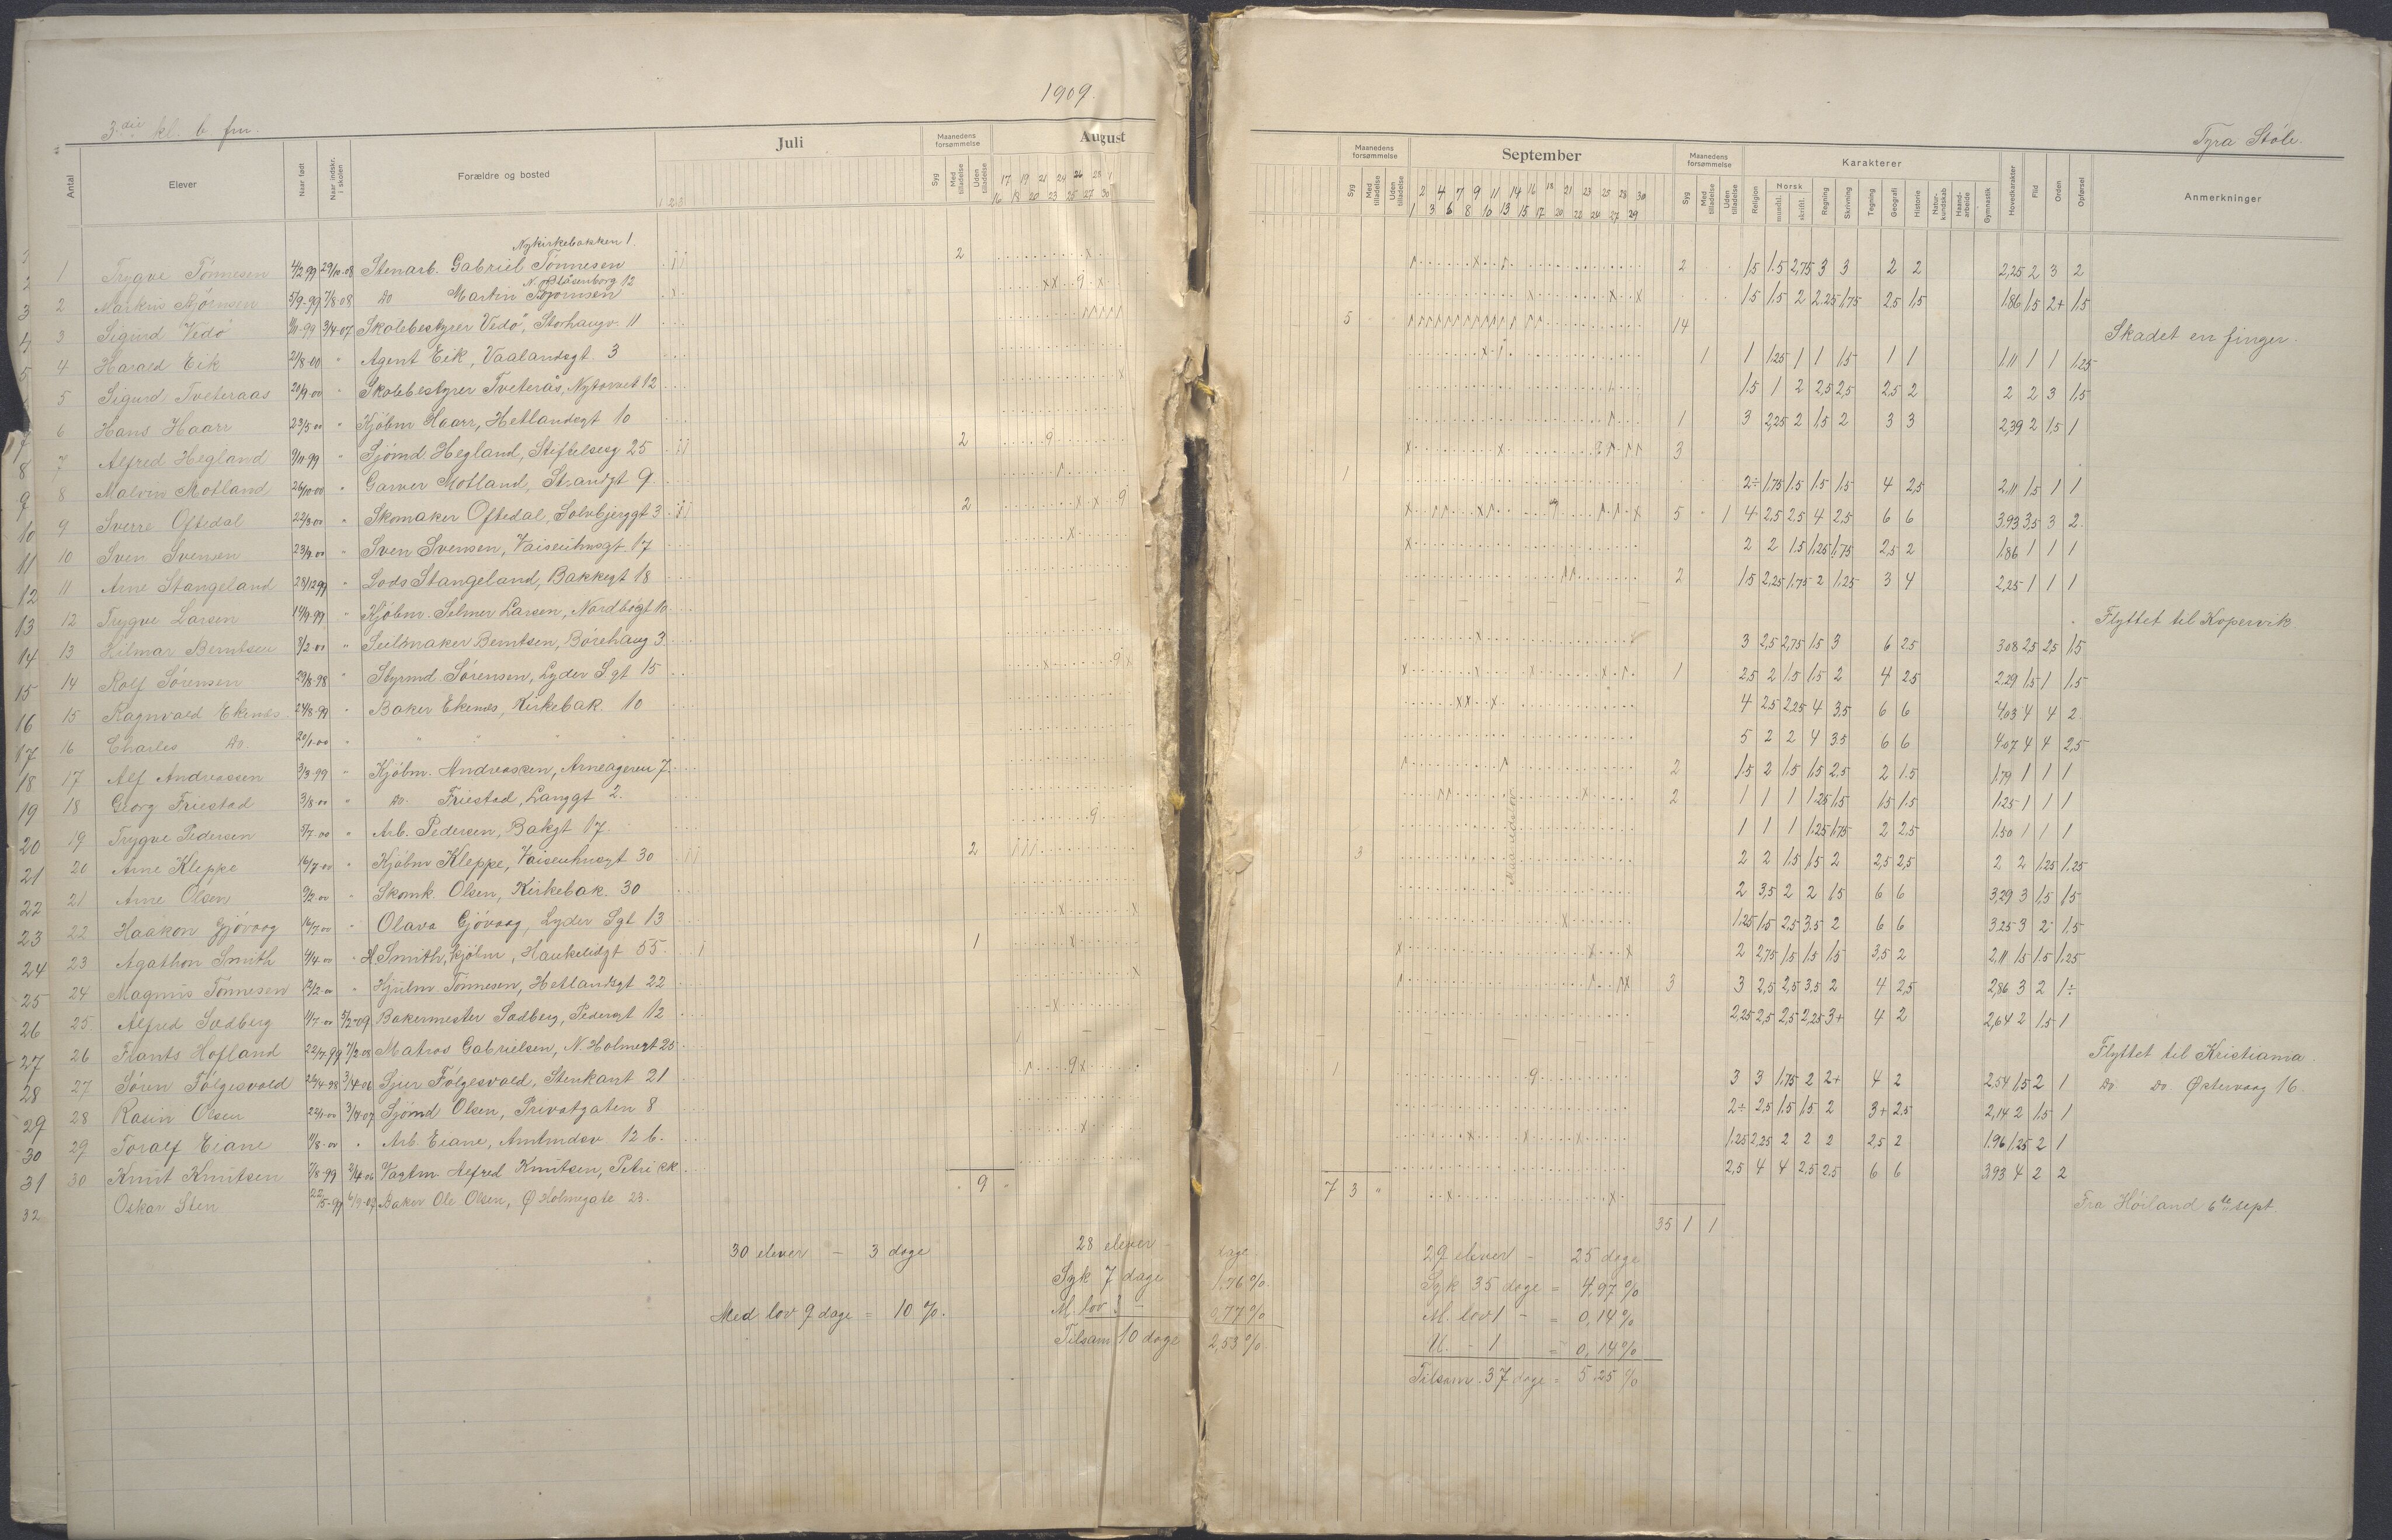 1909.
3die kl. b fm.
Tyra Støle.
Antal | Elever | Naar født | Naar indskr. i skolen | Forældre og bosted | Juli | Maanedens forsømmelse | Syg | Med tilladelse | Uden tilladelse | August
Maanedens forsømmelse | Syg | Med tilladelse | Uden tilladelse | September | Maanedens forsømmelse | Syg | Med tilladelse | Uden tilladelse | Karakterer | Religion | Norsk | mundtl. | skriftl. | Regning | Skrivning | Tegning | Geografi | Historie | Naturkundskab | Haandarbeide | Gymnastik | Hovedkarakter | Flid | Orden | Opførsel | Anmerkninger
17 19 21 24 26 28 1
16 18 20 23 25 27 30
2 4 7 9 11 14 16 18 21 23 25 28 30
1 3 6 8 10 13 15 17 20 22 24 27 29
Nykirkebakken 1.
1 Trygve Tönnesen 4/2 99 29/10-08 Stenarb. Gabriel Tönnesen 2 | 2 | 1,5 1,5 2,75 3 3 2 2 2,25 2 3 2
N. Blåsenborg 12
2 Markus Björnsen 5/9-99 7/8-08 Do Martin Bjørnsen | 1,5 1,5 2 2,25 1,75 2,5 1,5 1,86 1,5 2+ 1,5
3 Sigurd Vedö 3/4-07 Skolebestyrer Vedö, Storhaugv. 11 | 5 | 14 | Skadet en finger.
4 Harald Eik 21/8-00 " Agent Eik, Vaalandsgt. 3 | 1 | 1 1,25 1 1 1,5 1 1 1,11 1 1 1,25
5 Sigurd Tveteraas 20/9-00 " Skolebestyrer Tveterås, Nytorvet 12 | 1,5 1 2 2,5 2,5 2,5 2 2 2 3 1,5
6 Hans Haarr 23/5 00 " Kjöbm Haarr, Hetlandsgt 10 | 1 | 3 2,25 2 1,5 2 3 3 2,39 2 1,5 1
7 Alfred Hegland 9/11-99 " Sjömd. Hegland, Stiftelsesg 25 2 | 3
8 Malvin Motland 26/10-00 " Garver Motland, Strandgt 9 | 1 | 2÷ 1,75 1,5 1,5 1,5 4 2,5 2,11 1,5 1 1
9 Sverre Oftedal 22/3-00 " Skomaker Oftedal, Solvbjerggt 3 2 | 5 " 1 | 4 2,5 2,5 4 2,5 6 6 3,93 3,5 3 2
10 Sven Svensen 23/9-00 " Sven Svensen, Vaisenhusgt. 17 | 2 2 1,5 1,25 1,75 2,5 2 1,86 1 1 1
11 Arne Stangeland 28/12 99 " Lods Stangeland, Bakkegt 18 | 2 | 1,5 2,25 1,75 2 1,25 3 4 2,25 1 1 1
12 Trygve Larsen 14/9-99 " Kjöbm. Selmer Larsen, Nordbögt 10 | Flyttet til Kopervik
13 Hilmar Berntsen 8/2-00 " Seilmaker Berntsen, Börehaug 3 | 3 2,5 2,75 1,5 3 6 2,5 3,08 2,5 2,5 1,5
14 Rolf Sörensen 29/8-98 " Styrmd Sörensen, Lyder S.gt 15 | 1 | 2,5 2 1,5 1,5 2 4 2,5 2,29 1,5 1 1,5
15 Ragnvald Ekenes 24/8-99 " Baker Ekenes, Kirkebak. 10 | 4 2,5 2,25 4 3,5 6 6 4,03 4 4 2
16 Charles Do. 20/1-00 " " " " " | 5 2 2 4 3,5 6 6 4,07 4 4 2,5
17 Alf Andreassen 3/3-99 " Kjöbm. Andreassen, Arneageren 7 | 2 | 1,5 2 1,5 1,5 2,5 2 1,5 1,79 1 1 1
18 Georg Friestad 3/8-00 " Do. Friestad, Langgt 2. | 2 | 1 1 1 1,25 1,5 1,5 1,5 1,25 1 1 1
19 Trygve Pedersen 9/7-00 " Arb. Pedersen, Bakgt 17. | 1 1 1 1,25 1,75 2 2,5 1,50 1 1 1
20 Arne Kleppe 16/7-00 " Kjöbm Kleppe, Vaisenhusgt 30 2 | 3 | 2 2 1,5 1,5 2 2,5 2,5 2 2 1,25 1,25
21 Arne Olsen 9/2-00 " Skomk. Olsen, Kirkebak. 30 | 2 3,5 2 2 1,5 6 6 3,29 3 1,5 1,5
22 Haakon Gjövaag 16/7-00 " Olava Gjövaag, Lyder Sgt 13 | 1,25 1,5 2,5 3,5 2 6 6 3,25 3 2 1,5
23 Agathon Smith 9/4-00 " A Smith, kjöbm, Haukelidgt 55. 1 | 2 2,75 1,5 1,5 1,5 3,5 2 2,11 1,5 1,5 1,25
24 Magnus Tönnesen 12/2-00 " Hjulm. Tönnesen, Hetlandsgt 22 | 3 | 3 2,5 2,5 3,5 2 4 2,5 2,86 3 2 1÷
25 Alfred Sædberg 11/7-00 3/2-09 Bakermester Sædberg, Pedersgt 12 | 2,25 2,5 2,5 2,25 3+ 4 2 2,64 2 1,5 1
26 Frants Hofland 22/7-99 7/2-08 Matros Gabrielsen, N. Holmegt 25 | Flyttet til Kristiania.
27 Sören Fölgesvold 26/4-98 3/4-06 Sjur Fölgesvold, Stenkart 21 | 1 | 3 3 1,75 2 2+ 4 2 2,54 1,5 2 1 | Do Do Østervaag 16.
28 Rasin Olsen 22/1-00 3/4-07 Sjömd Olsen, Privatgaten 8 | 2÷ 2,5 1,5 1,5 2 3+ 2,5 2,14 2 1,5 1
29 Toralf Eiane 11/8-00 " Arb Eiane, Amtmdsv 12 b. | 1,25 2,25 2 2 2 2,5 2 1,96 1,25 2 1
30 Knut Knutsen 7/8-99 2/4-06 Vagtm. Alfred Knutsen, Petri kk | 2,5 4 4 2,5 2,5 6 6 3,93 4 2 2
Oskar Sten 22/5-99 6/9-09 Baker Ole Olsen, Ø Holmegate 23. | Fra Höiland 6te sept
" 9 " | 7 3 " | 35 1 1
Maanedslov
30 elever - 3 dage
Med lov 9 dage = 10 %.
28 elever dage
Syk 7 dage 1,76 %
M. lov 3 - 0,77 %
Tilsam 10 dage 2,53 %
29 elever - 25 dage
Syk 35 dage = 4,97 %
M. lov 1 - = 0,14 %
U. - 1 = 0,14 %
Tilsam. 37 dage = 5,25 %